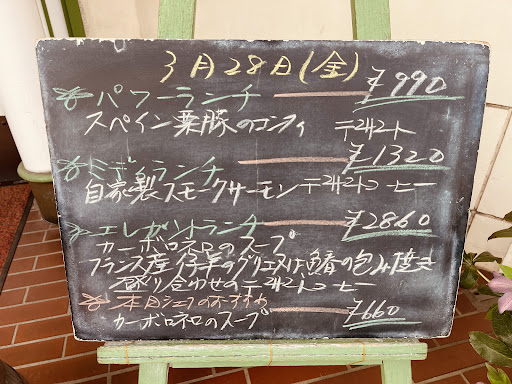 3月28日(金)
※パワーランチ ¥990
スペイン栗豚のコンフィ デセール
※ミディランチ ¥1320
自家製スモークサーモン デセール コーヒー
※エレガントランチ ¥2860
カーボロネロのスープ
フランス産仔羊のグリエ又は鰆の包み焼き
盛り合わせのデセール コーヒー
※本日シェフのおすすめ
カーボロネロのスープ ¥660